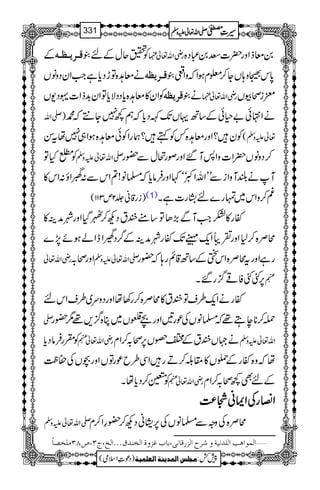 سیرتِ مصطفی صلی اللہ تعالیٰ علیہ وسلم
331
بن معاذ اور حضرت سعد بن عبادہ رضی اللہ تعالیٰ عنہما کو تحقیق حال کے لئے بنو قریظہ کے
پاس بھیجا وہاں جا کر معلوم ہوا کہ واقعی بنو قریظہ نے معاہدہ توڑ دیا ہے جب ان دونوں
معزز صحابیوں رضی اللہ تعالیٰ عنہما نے بنو قریظہ کو ان کا معاہدہ یاد دلایا تو ان بدذات یہودیوں
نے انتہائی بے حیائی کے ساتھ یہاں تک کہہ دیا کہ ہم کچھ نہیں جانتے کہ محمد (صلی اللہ
تعالیٰ علیہ وسلم) کون ہیں؟ اور معاہدہ کس کو کہتے ہیں؟ ہمارا کوئی معاہدہ ہوا ہی نہیں تھا یہ سن
کر دونوں حضرات واپس آگئے اور صورتحال سے حضور صلی اللہ تعالیٰ علیہ وسلم کو مطلع کیا تو
آپ نے بلند آواز سے ”اللہ اکبر“ کہا اور فرمایا کہ مسلمانو! تم اس سے نہ گھبراؤ نہ اس کا
غم کرو اس میں تمہارے لئے بشارت ہے۔(1) (زرقانی ج۲ ص۱۱۳)
کفار کا لشکر جب آگے بڑھا تو سامنے خندق دیکھ کر ٹھہر گیا اور شہر مدینہ کا
محاصرہ کر لیا اور تقریباً ایک مہینے تک کفار شہر مدینہ کے گرد گھیرا ڈالے ہوئے پڑے
رہے اور یہ محاصرہ اس سختی کے ساتھ قائم رہا کہ حضور صلی اللہ تعالیٰ علیہ وسلم اور صحابہ رضی اللہ تعالیٰ
عنہم پر کئی کئی فاقے گزر گئے۔
کفار نے ایک طرف تو خندق کا محاصرہ کر رکھا تھا اور دوسری طرف اس لئے
حملہ کرنا چاہتے تھے کہ مسلمانوں کی عورتیں اور بچے قلعوں میں پناہ گزیں تھے مگر حضور صلی
اللہ تعالیٰ علیہ وسلم نے جہاں خندق کے مختلف حصوں پر صحابہ کرام رضی اللہ تعالیٰ عنہم کو مقرر فرما دیا
تھا کہ وہ کفار کے حملوں کا مقابلہ کرتے رہیں اسی طرح عورتوں اور بچوں کی حفاظت
کے لئے بھی کچھ صحابہ کرام رضی اللہ تعالیٰ عنہم کو متعین کر دیا تھا۔
انصار کی ایمانی شجاعت
محاصرہ کی وجہ سے مسلمانوں کی پریشانی دیکھ کر حضور اکرم صلی اللہ تعالیٰ علیہ وسلم
......المواہب اللدنیۃ و شرح الزرقانی، باب غزوۃ الخندق...الخ، ج۳، ص۳۸ ملخصاً
پیش کش: مجلس المدینۃ العلمیۃ (دعوتِ اسلامی)